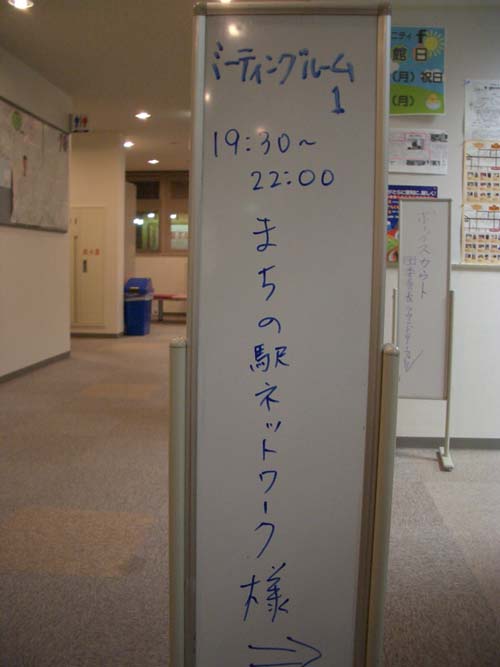 ミーティングルーム
1
19:30~
22:00
まちの駅ネットワーク 様
ニティ f
館日
(月)祝日
(月)
ボーイスカウト